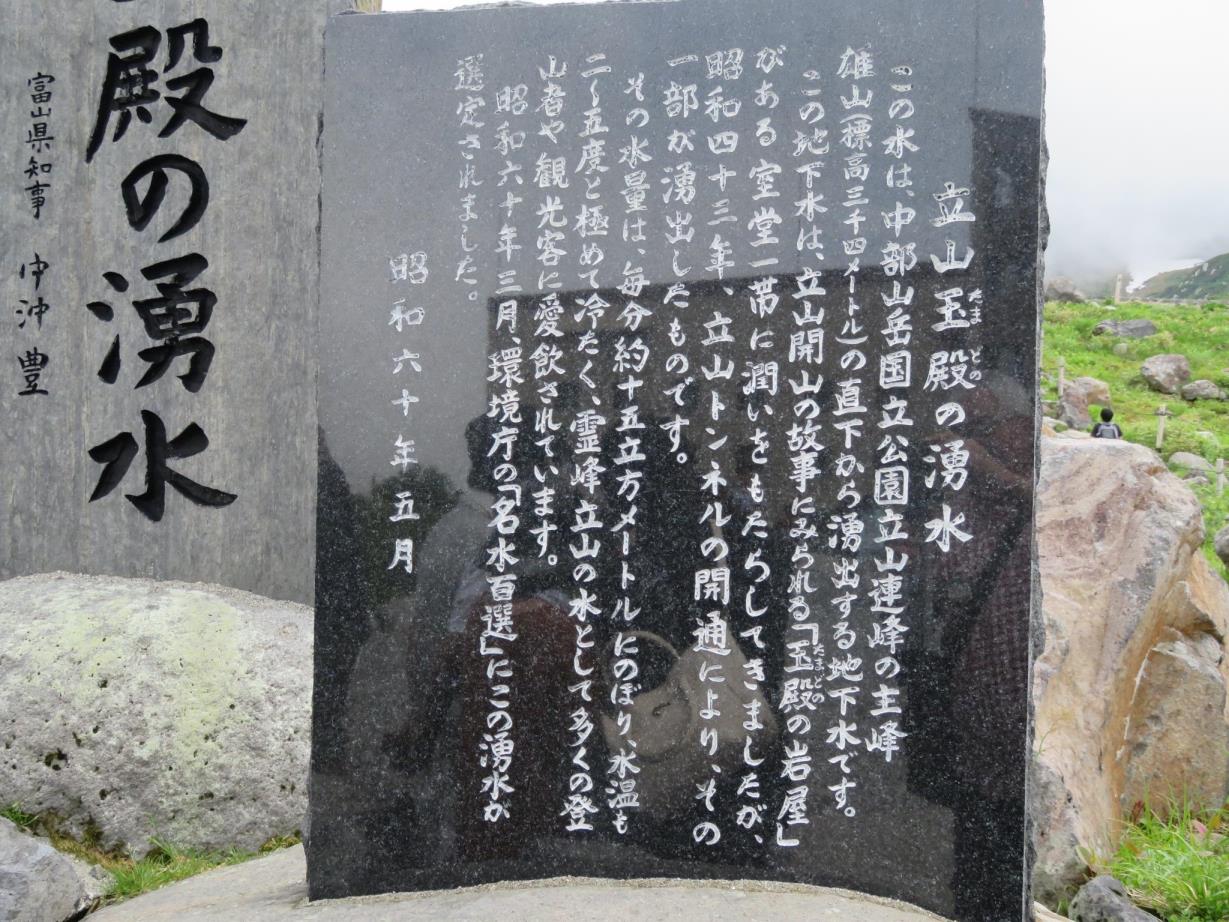 立山玉殿の湧水
たま どの
この水は、中部山岳国立公園立山連峰の主峰
雄山(標高三千四メートル)の直下から湧出する地下水です。
この地下水は、立山開山の故事にみられる「玉殿の岩屋」
たまどの
がある室堂一帯に潤いをもたらしてきましたが、
昭和四十三年、立山トンネルの開通により、その
一部が湧出したものです。
その水量は、毎分約十五立方メートルにのぼり、水温も
二〜五度と極めて冷たく、霊峰立山の水として多くの登
山者や観光客に愛飲されています。
昭和六十年三月、環境庁の「名水百選」にこの湧水が
選定されました。
昭和六十年五月
殿の湧水
富山県知事 中沖豊